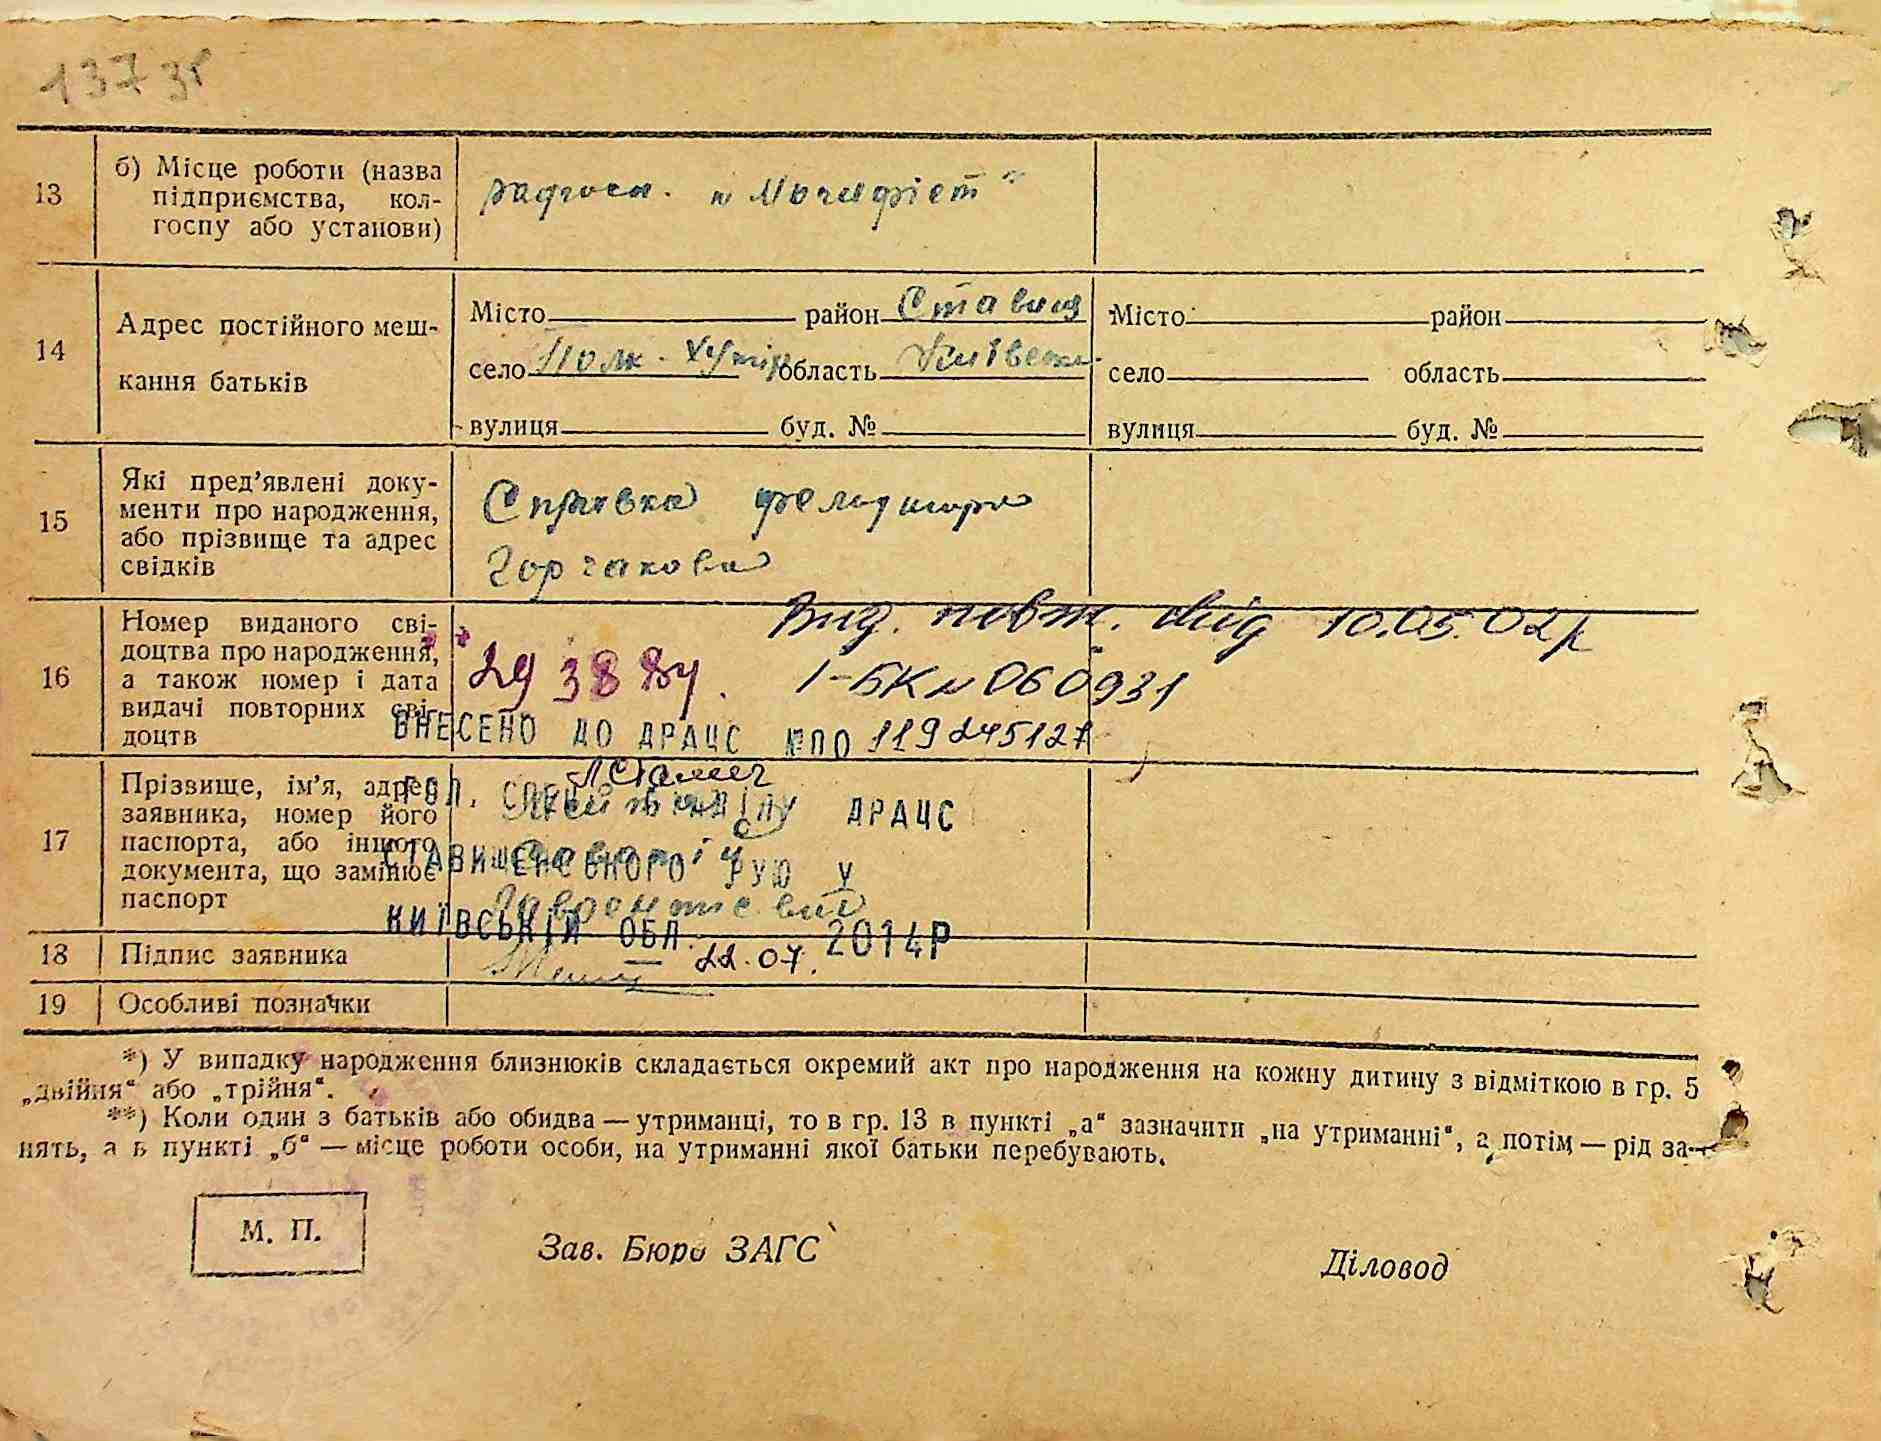 137 зр
13
б) Місце роботи (назва
підприємства, кол-
госпу або установи)
радгосп. „Маніфест“
14
Адрес постійного меш-
кання батьків
Місто район Ставищ
село Полк. Хутір область Київськ.
вулиця буд. №
Місто район
село область
вулиця буд. №
15
Які пред’явлені доку-
менти про народження,
або прізвище та адрес
свідків
Справка фельдшера
Горчакова
16
Номер виданого сві-
доцтва про народження,
а також номер і дата
видачі повторних сві-
доцтв
Вид. повт. свід 10.05.02р
1-БК № 060931
ВНЕСЕНО ДО ДРАЦС 119245127
17
Прізвище, ім’я, адрес
заявника, номер його
паспорта, або іншого
документа, що замінює
паспорт
ГОЛ. СПЕЦ. ВІДДІЛУ ДРАЦС
СТАВИЩЕНСЬКОГО РУЮ У
КИЇВСЬКІЙ ОБЛ. 2014Р
18
Підпис заявника
22.07.
19
Особливі позначки
*) У випадку народження близнюків складається окремий акт про народження на кожну дитину з відміткою в гр. 5
„двійня“ або „трійня“.
**) Коли один з батьків або обидва — утриманці, то в гр. 13 в пункті „а“ зазначити „на утриманні“, а потім — рід за-
нять, а в пункті „б“ — місце роботи особи, на утриманні якої батьки перебувають.
М. П.
Зав. Бюро ЗАГС
Діловод